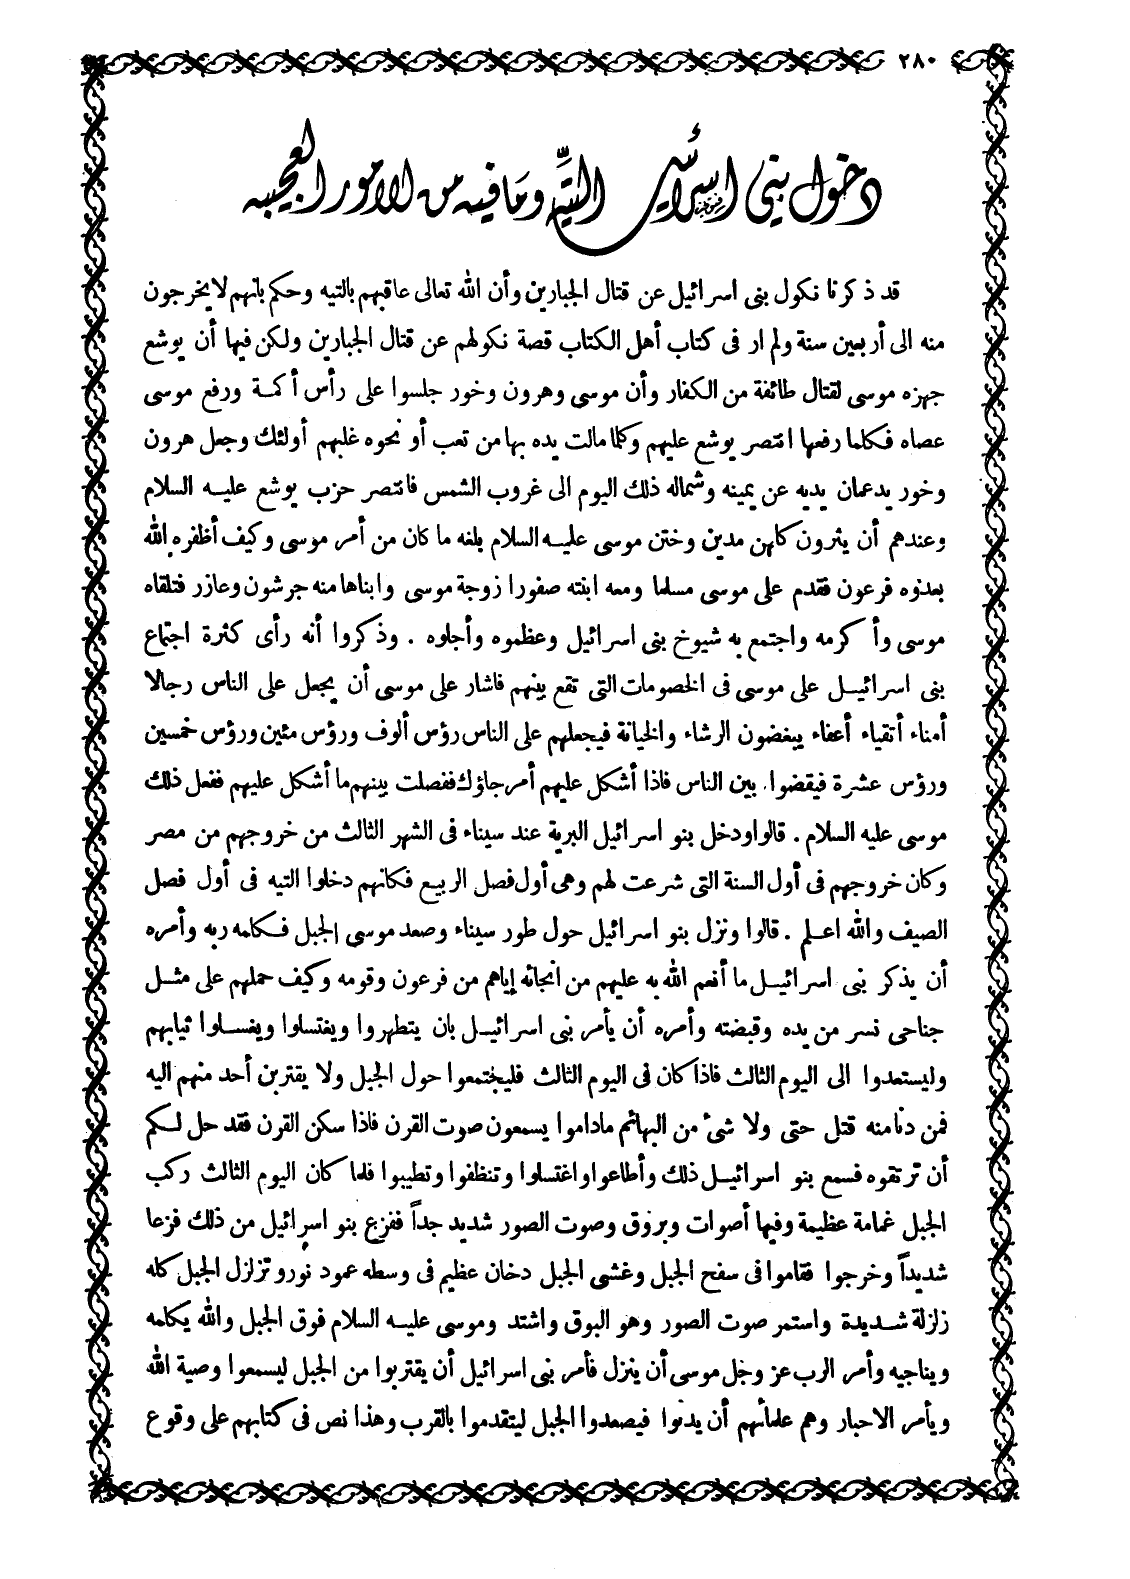 ٢٨٠
دخول بنى اسرائيل التِّيه وما فيه من الامور العجيبه
قد ذكرنا نكول بنى اسرائيل عن قتال الجبارين وأن الله تعالى عاقبهم بالتيه وحكم بانهم لا يخرجون
منه الى أربعين سنة ولم ار فى كتاب أهل الكتاب قصة نكولهم عن قتال الجبارين ولكن فيها أن يوشع
جهزه موسى لقتال طائفة من الكفار وأن موسى وهرون وخور جلسوا على رأس أكمة ورفع موسى
عصاه فكلما رفعها انتصر يوشع عليهم وكلما مالت يده بها من تعب أو نحوه غلبهم أولئك وجعل هرون
وخور يدعمان يديه عن يمينه وشماله ذلك اليوم الى غروب الشمس فانتصر حزب يوشع عليه السلام
وعندهم أن يثرون كاهن مدين وختن موسى عليه السلام بلغه ما كان من أمر موسى وكيف أظفره الله
بعدوه فرعون فقدم على موسى مسلما ومعه ابنته صفورا زوجة موسى وابناها منه جرشون وعازر فتلقاه
موسى وأكرمه واجتمع به شيوخ بنى اسرائيل وعظموه وأجلوه . وذكروا أنه رأى كثرة اجتماع
بنى اسرائيل على موسى فى الخصومات التى تقع بينهم فاشار على موسى أن يجعل على الناس رجالا
أمناء أتقياء أعفاء يبغضون الرشاء والخيانة فيجعلهم على الناس رؤس ألوف ورؤس مئين ورؤس خمسين
ورؤس عشرة فيقضوا بين الناس فاذا أشكل عليهم أمر جاؤك ففصلت بينهم ما أشكل عليهم ففعل ذلك
موسى عليه السلام . قالوا ودخل بنو اسرائيل البرية عند سيناء فى الشهر الثالث من خروجهم من مصر
وكان خروجهم فى أول السنة التى شرعت لهم وهى أول فصل الربيع فكانهم دخلوا التيه فى أول فصل
الصيف والله اعلم . قالوا ونزل بنو اسرائيل حول طور سيناء وصعد موسى الجبل فكلمه ربه وأمره
أن يذكر بنى اسرائيل ما أنعم الله به عليهم من انجائه إياهم من فرعون وقومه وكيف حملهم على مثل
جناحى نسر من يده وقبضته وأمره أن يأمر بنى اسرائيل بان يتطهروا ويغتسلوا ويغسلوا ثيابهم
وليستعدوا الى اليوم الثالث فاذا كان فى اليوم الثالث فليجتمعوا حول الجبل ولا يقتربن أحد منهم اليه
فمن دنا منه قتل حتى ولا شئ من البهائم ماداموا يسمعون صوت القرن فاذا سكن القرن فقد حل لكم
أن ترتقوه فسمع بنو اسرائيل ذلك وأطاعوا واغتسلوا وتنظفوا وتطيبوا فلما كان اليوم الثالث ركب
الجبل غمامة عظيمة وفيها أصوات وبروق وصوت الصور شديد جداً ففزع بنو اسرائيل من ذلك فزعا
شديداً وخرجوا فقاموا فى سفح الجبل وغشى الجبل دخان عظيم فى وسطه عمود نور وتزلزل الجبل كله
زلزلة شديدة واستمر صوت الصور وهو البوق واشتد وموسى عليه السلام فوق الجبل والله يكلمه
ويناجيه وأمر الرب عز وجل موسى أن ينزل فأمر بنى اسرائيل أن يقتربوا من الجبل ليسمعوا وصية الله
ويأمر الاحبار وهم علمائهم أن يدنوا فيصعدوا الجبل ليتقدموا بالقرب وهذا نص فى كتابهم على وقوع